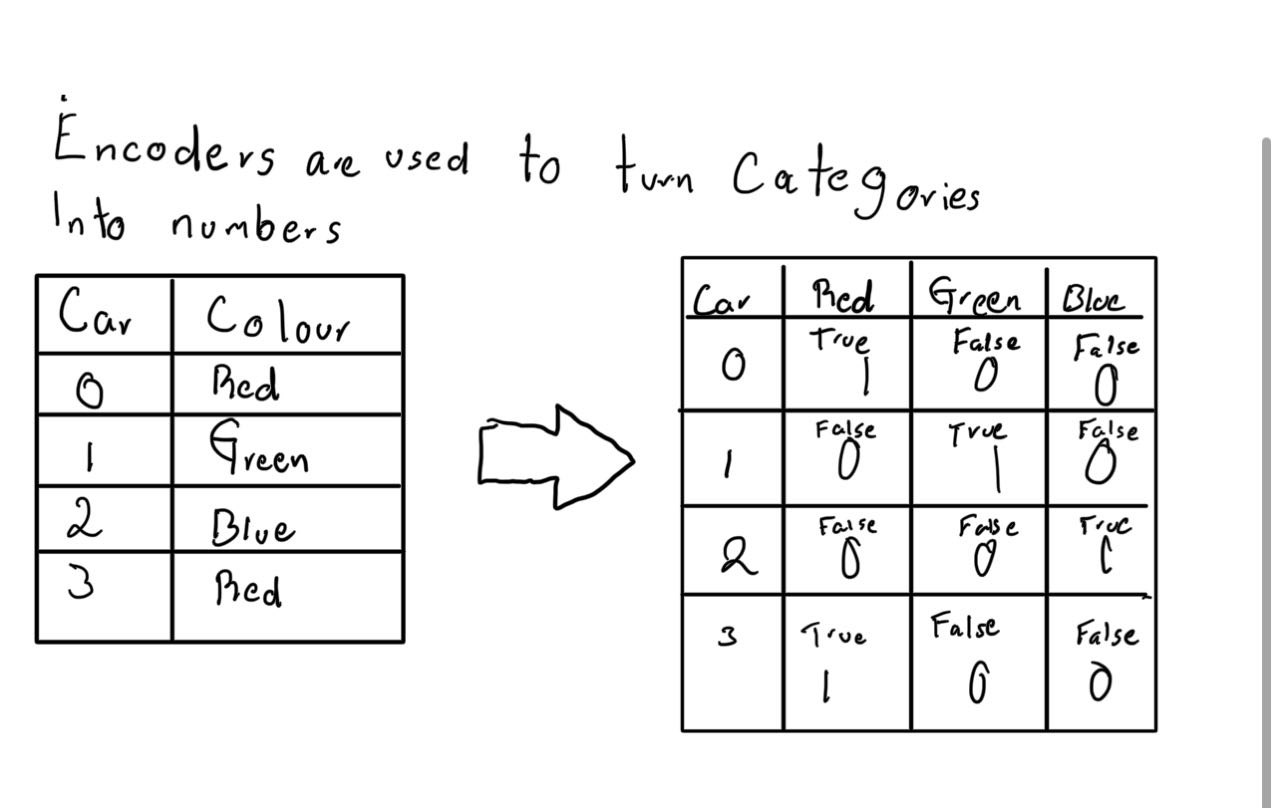 Encoders are used to turn Categories
Into numbers
Car Colour
0 Red
1 Green
2 Blue
3 Red
Car Red Green Blue
True False False
0 1 0 0
False True False
1 0 1 0
False False True
2 0 0 1
3 True False False
1 0 0